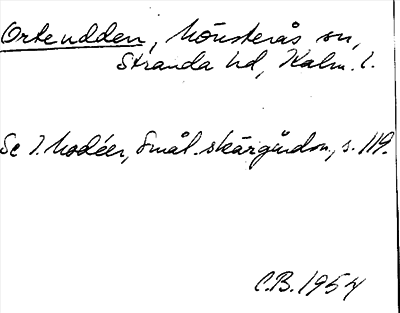 Orteudden, Mönsterås sn,
Stranda hd, Kalm. l.
Se I. Modéer, Smål. skärgårdsn., s. 119.
C.B. 1954